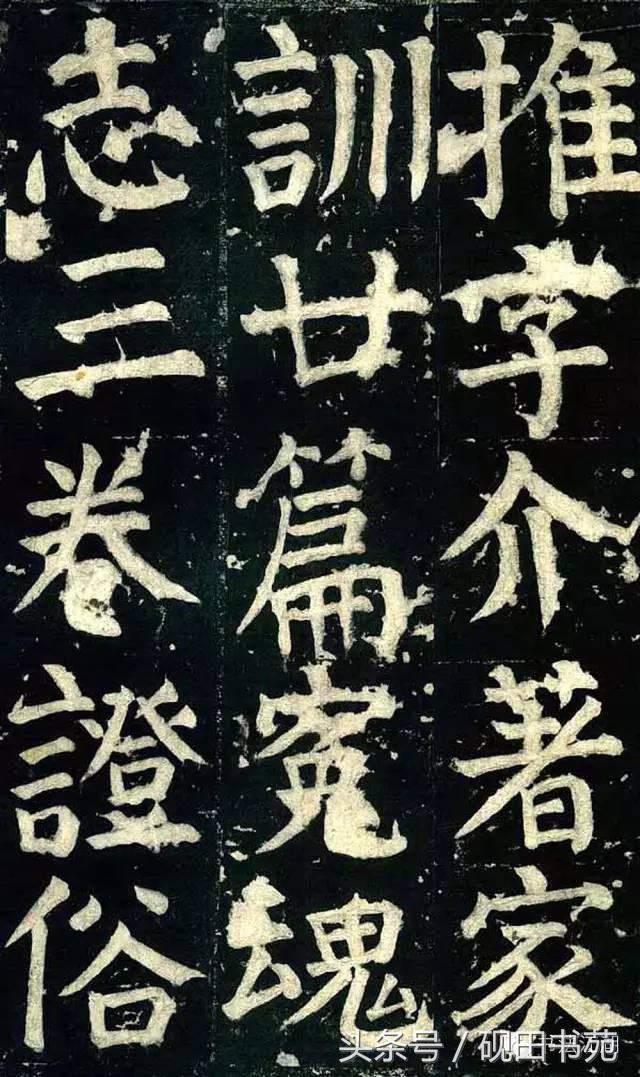 推字介著家
訓廿篇寃魂
志三卷證俗
头条号/砚田书苑